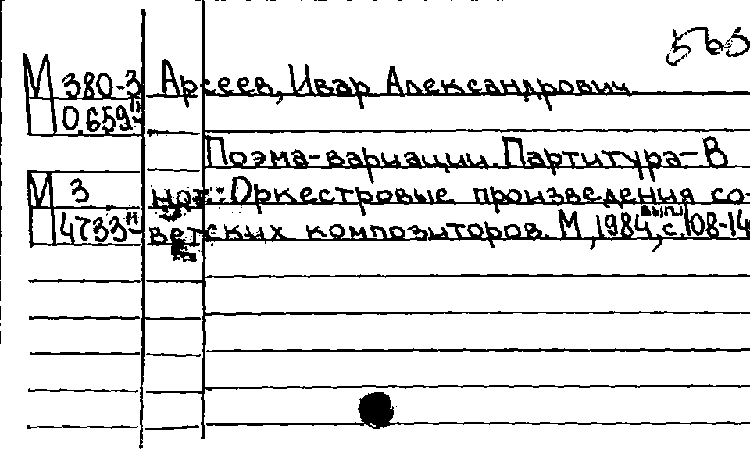 565
М 380-3 Арсеев, Ивар Александрович
0.659
Поэма-вариации. Партитура - В
М 3 нот.: Оркестровые произведения со-
4733 ветских композиторов. М., 1984, вып.11 с.108-14